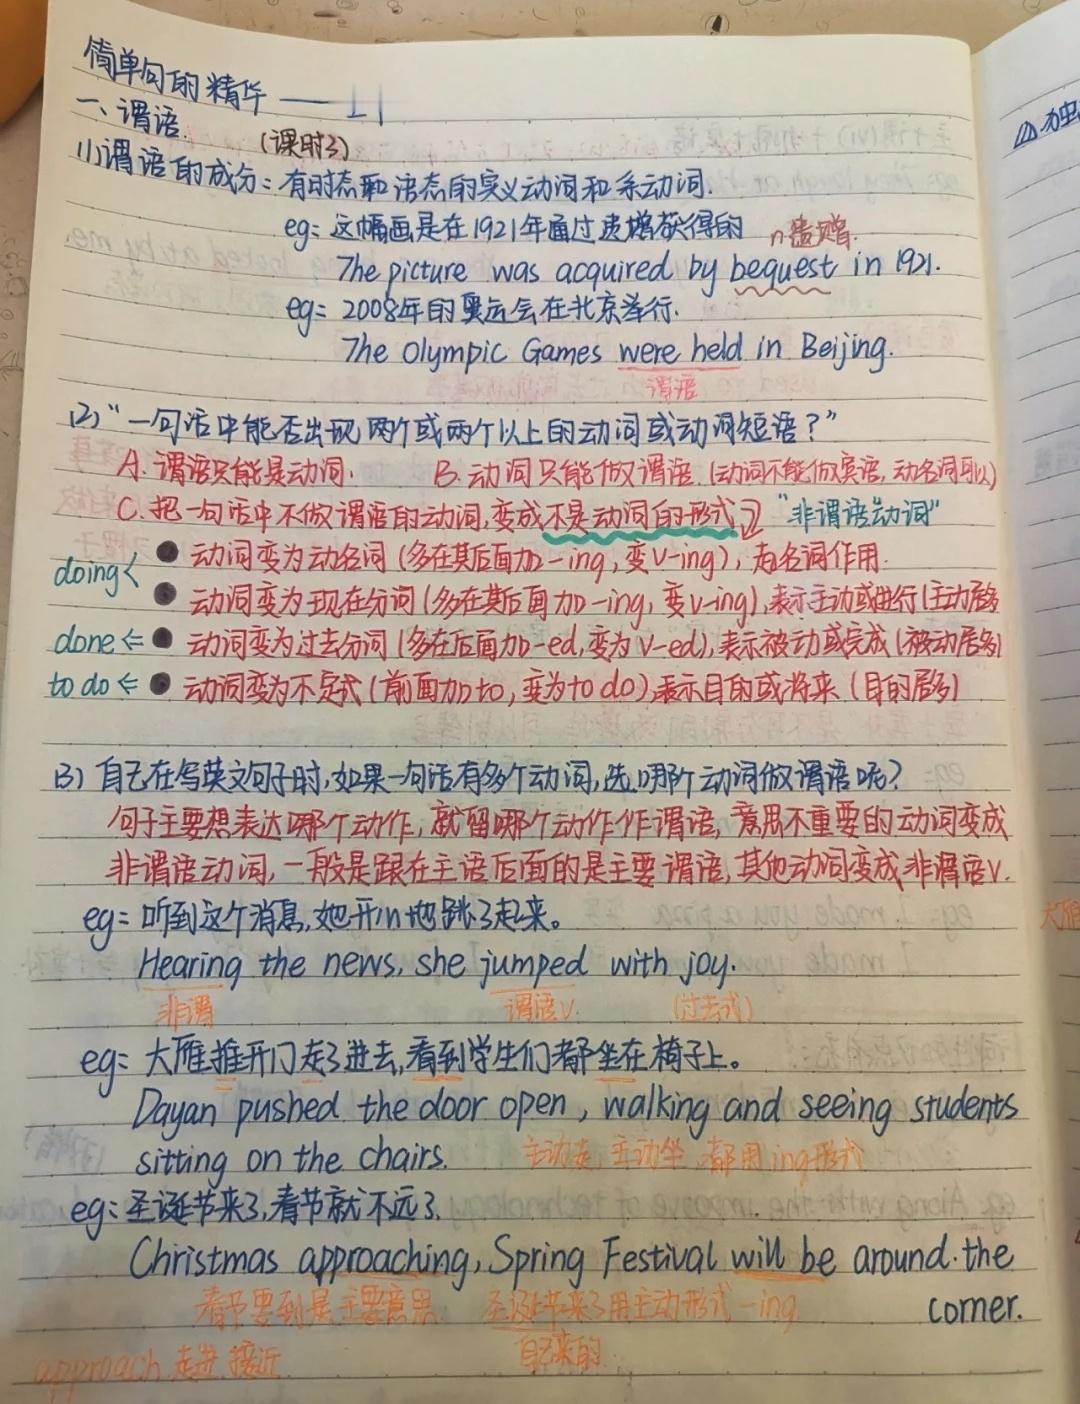 简单句的精华
一、谓语
(课时3)
(1)谓语的成分：有时态和语态的实义动词和系动词.
eg：这幅画是在1921年通过遗赠获得的 n遗赠.
The picture was acquired by bequest in 1921.
eg：2008年的奥运会在北京举行.
The Olympic Games were held in Beijing.
谓语
(2)“一句话中能否出现两个或两个以上的动词或动词短语？”
A. 谓语只能是动词. B. 动词只能做谓语.(动词不能做宾语,动名词可以)
C. 把一句话中不做谓语的动词,变成不是动词的形式 “非谓语动词”
doing
● 动词变为动名词(多在其后面加-ing,变v-ing),有名词作用.
● 动词变为现在分词(多在其后面加-ing,变v-ing),表示主动或进行(主动居多
done ⇐ ● 动词变为过去分词(多在后面加-ed,变为v-ed),表示被动或完成(被动居多)
to do ⇐ ● 动词变为不定式(前面加to,变为to do),表示目的或将来(目的居多)
(3)自己在写英文句子时,如果一句话有多个动词,选哪个动词做谓语呢?
句子主要想表达哪个动作,就留哪个动作作谓语,意思不重要的动词变成
非谓语动词,一般是跟在主语后面的是主要谓语,其他动词变成非谓语V.
eg：听到这个消息,她开心地跳了起来。
Hearing the news, she jumped with joy.
非谓 谓语V. (过去式)
eg：大雁推开门走了进去,看到学生们都坐在椅子上。
Dayan pushed the door open, walking and seeing students
sitting on the chairs. 主动走,主动坐,都用ing形式
eg：圣诞节来了,春节就不远了.
Christmas approaching, Spring Festival will be around the
corner.
春节要到是主要意思 圣诞节来了用主动形式-ing
approach 走进 接近 自己来的